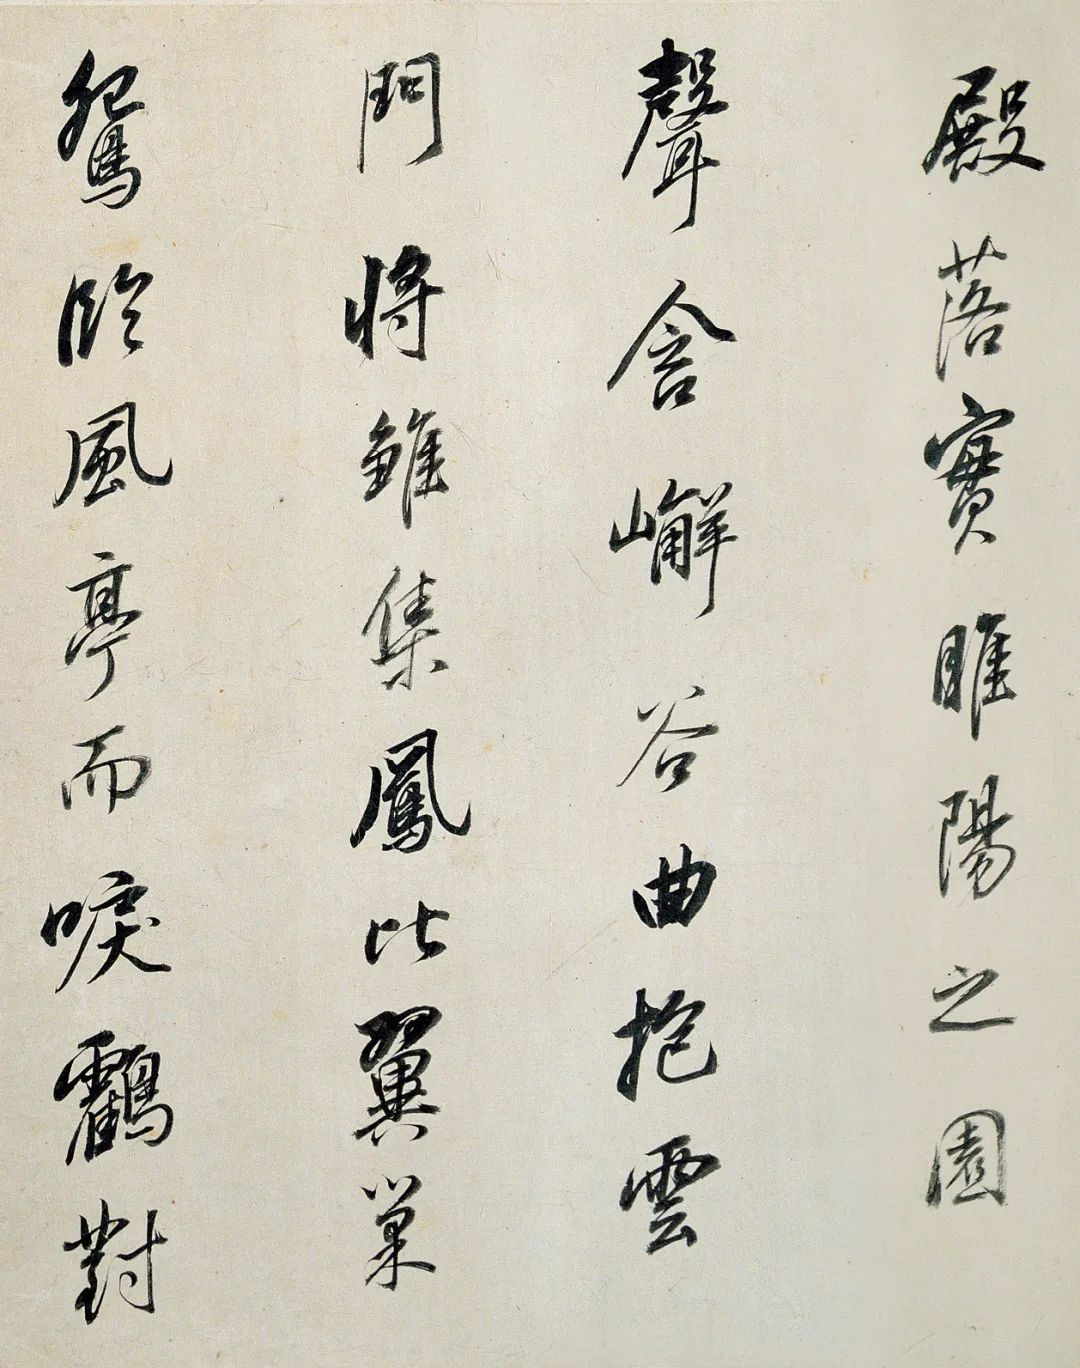 殿落實睢陽之園
聲含嶰谷曲抱雲
門將雛集鳳比翼巢
鴛臨風亭而唳鸖對